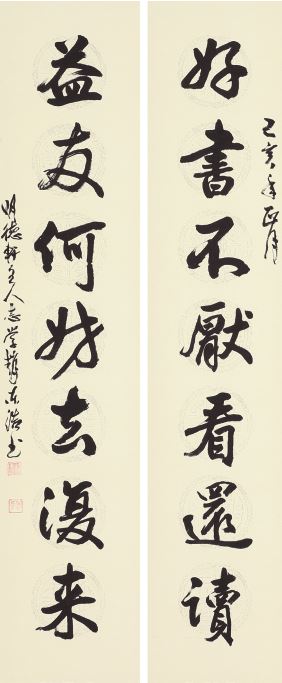 己亥年正月
好書不厭看還讀
益友何妨去復来
明德軒主人